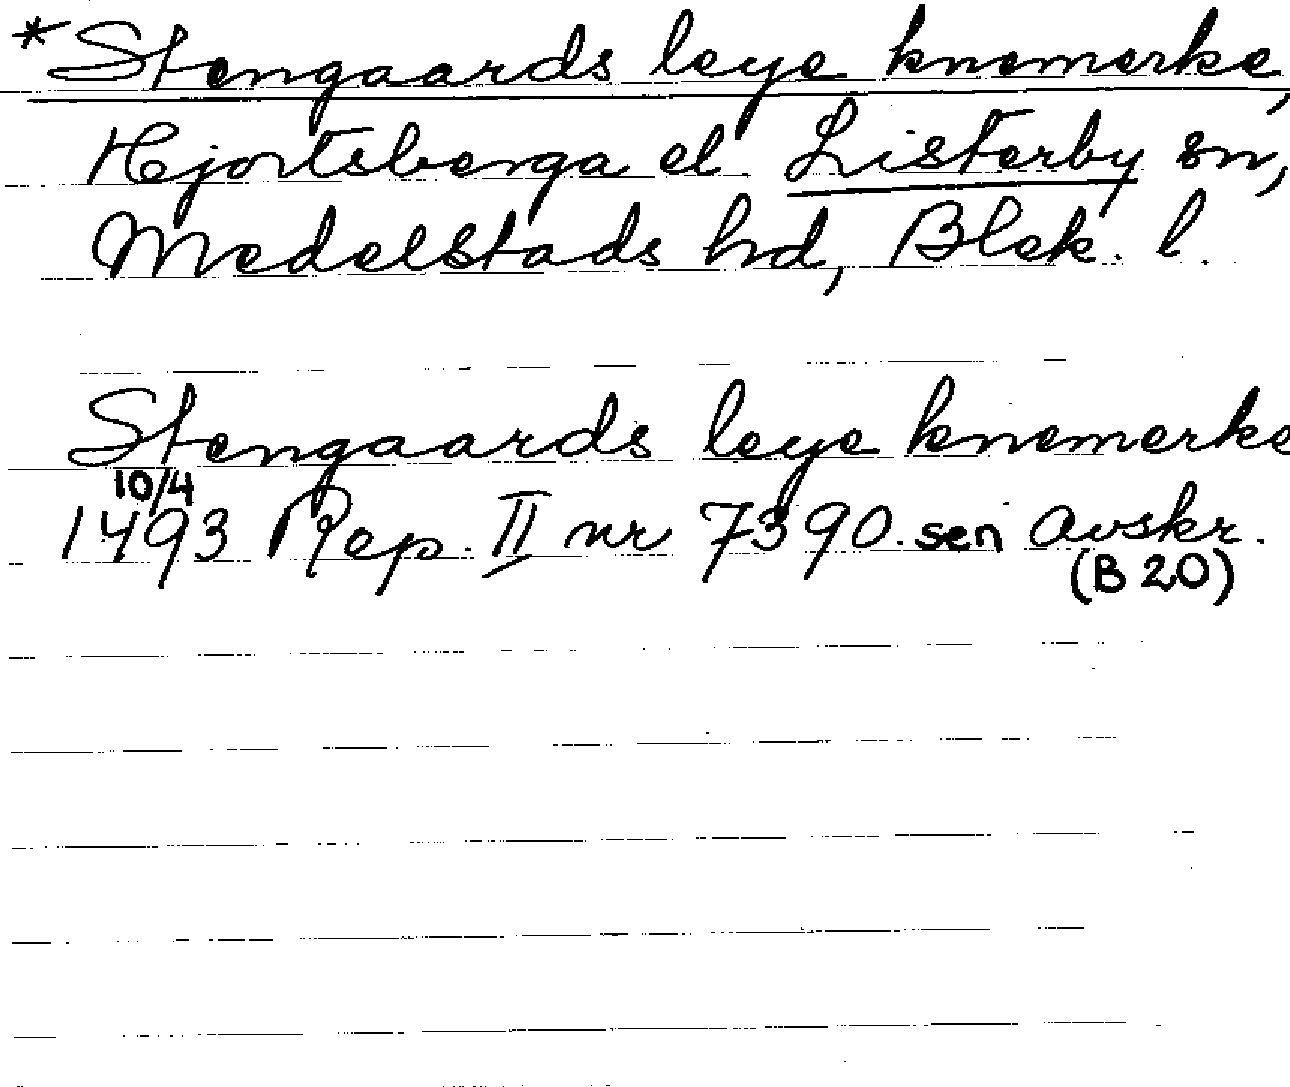 *Stengaards leye knemerke,
Hjortsberga el. Listerby sn,
Medelstads hd, Blek. l.
Stengaards leye knemerke
10/4
1493 Rep. II nr 7390. sen avskr.
(B 20)